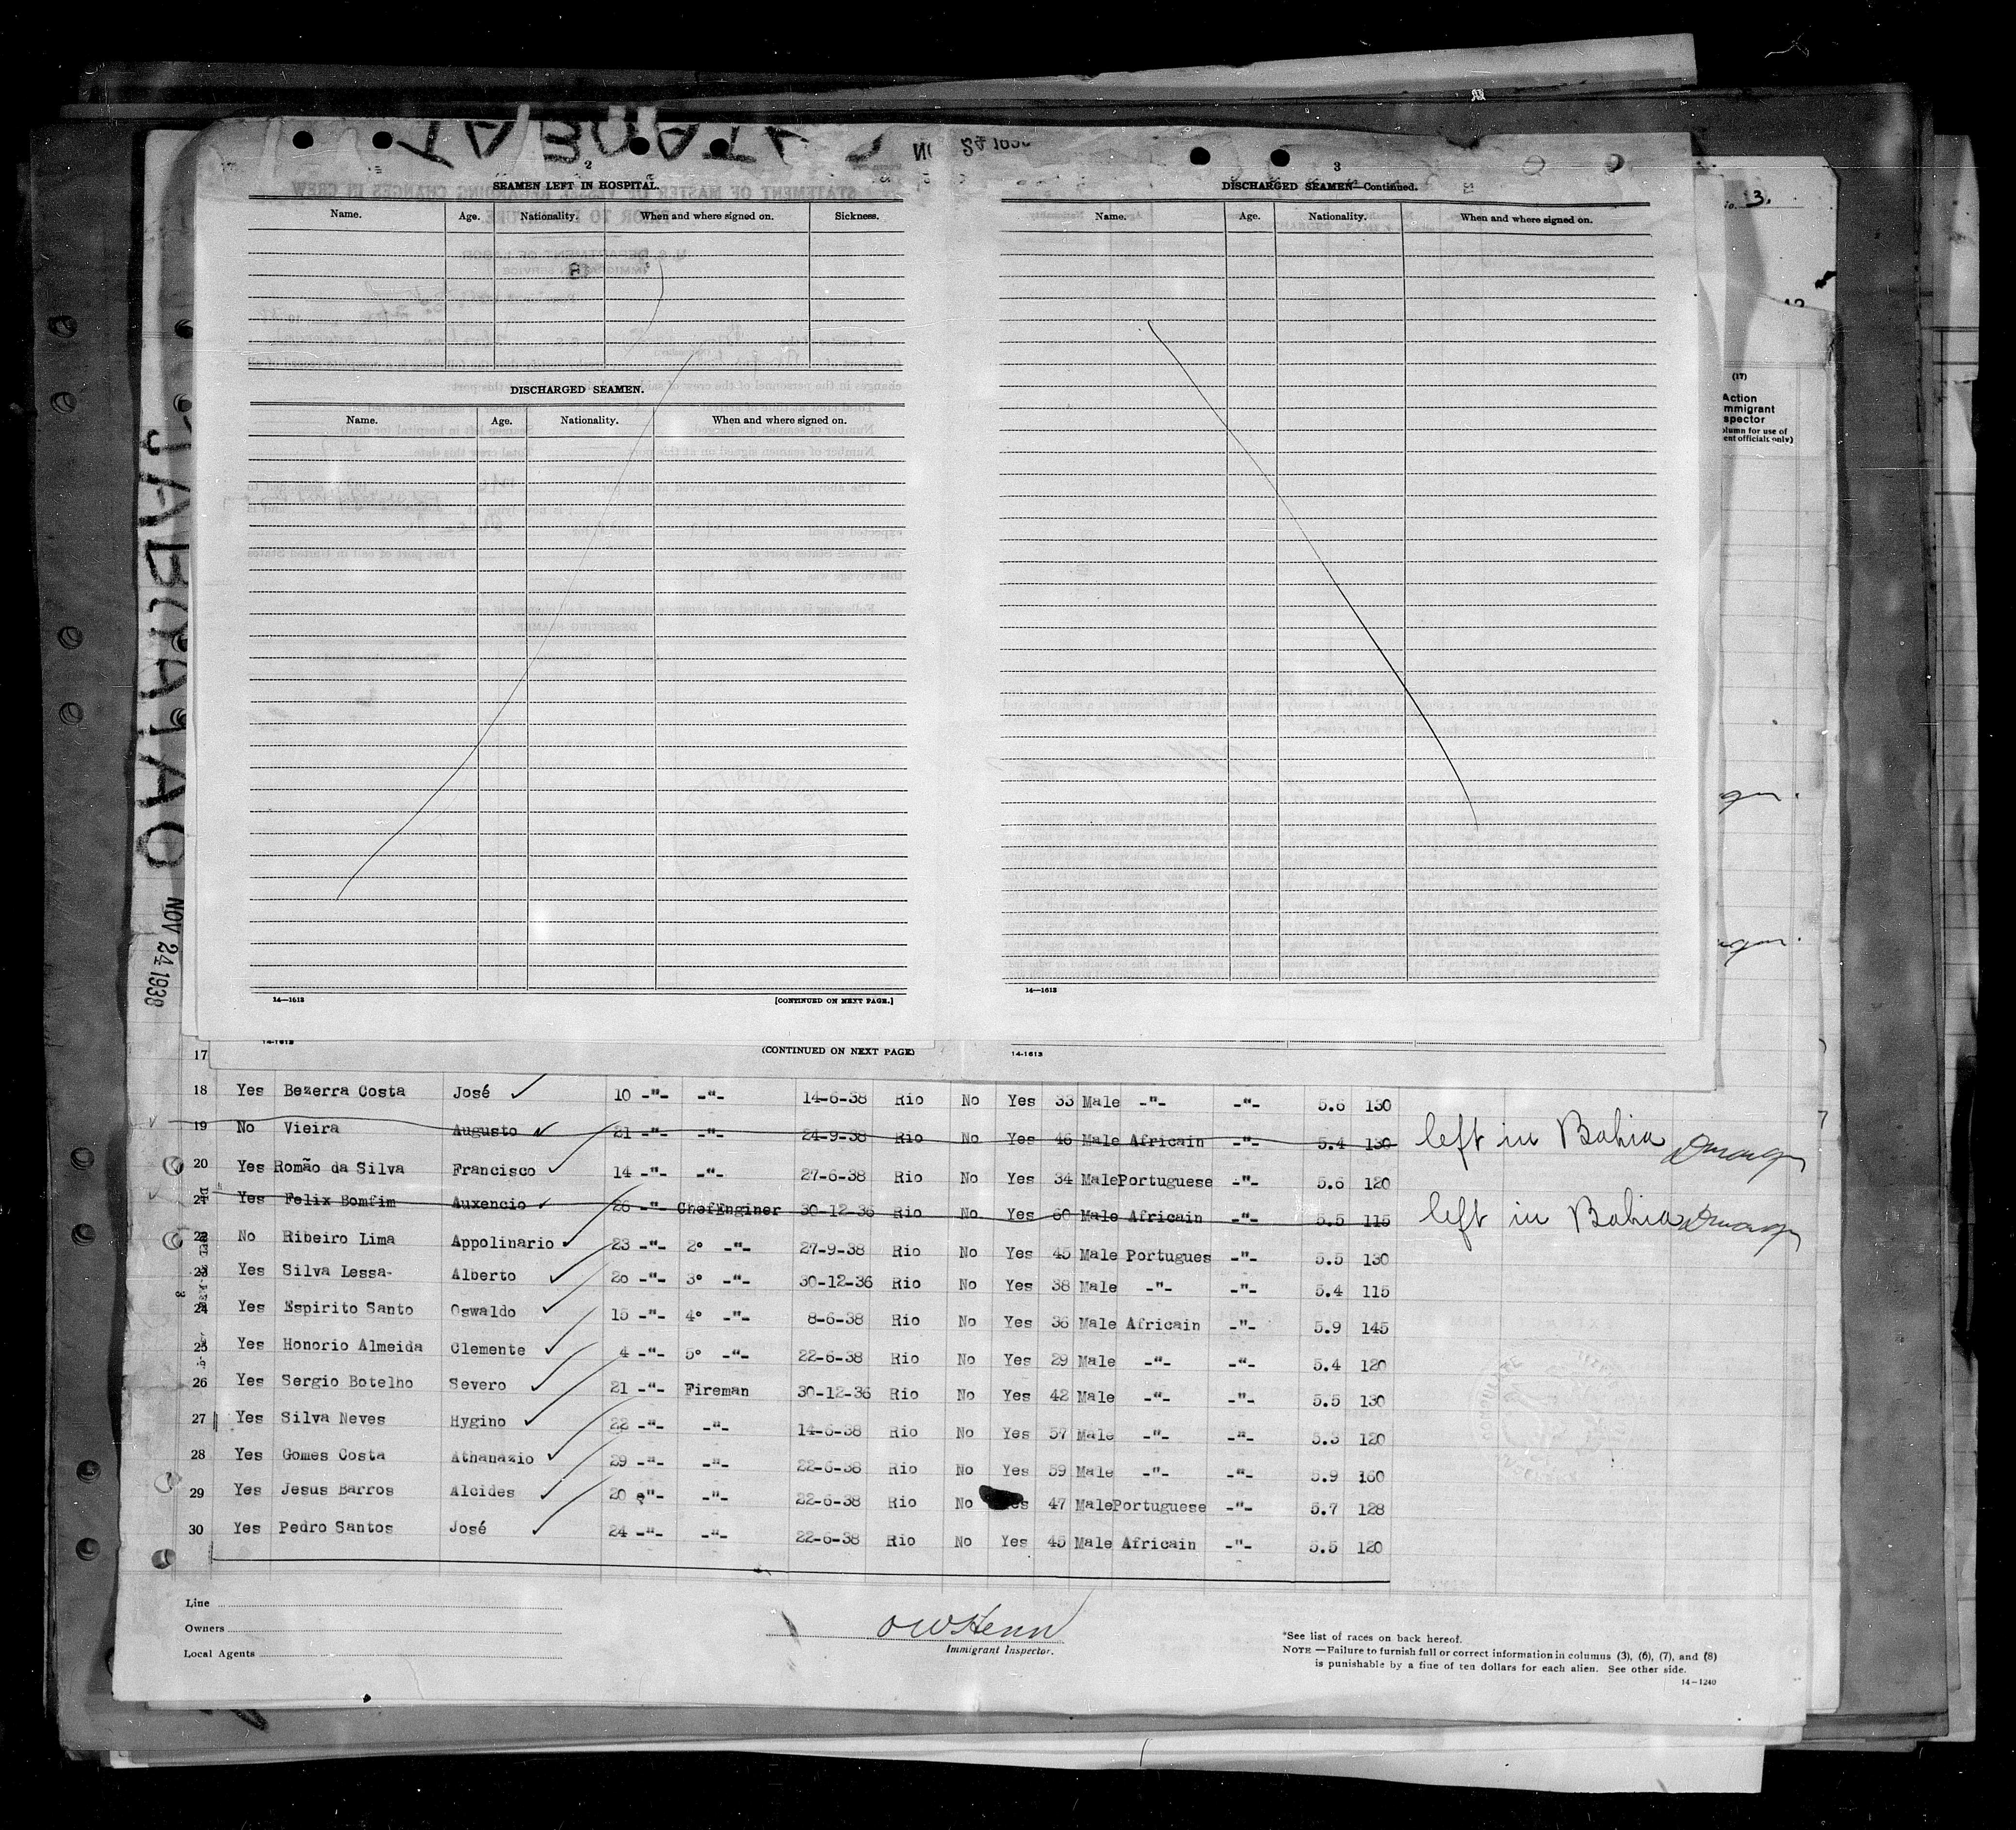 2
SEAMEN LEFT IN HOSPITAL.
Name. Age. Nationality. When and where signed on. Sickness.
DISCHARGED SEAMEN.
Name. Age. Nationality. When and where signed on.
14—1613 [CONTINUED ON NEXT PAGE.]
3
DISCHARGED SEAMEN—Continued.
Name. Age. Nationality. When and where signed on.
14—1613
No. 3.
(17)
Action
mmigrant
spector
olumn for use of
ent officials only)
JABOATAO
NOV 24 1938
14-1613 (CONTINUED ON NEXT PAGE) 14-1613
17
18 Yes Bezerra Costa José 10 -"- -"- 14-6-38 Rio No Yes 33 Male -"- -"- 5.6 130
19 No Vieira Augusto 21 -"- -"- 24-9-38 Rio No Yes 46 Male Africain -"- 5.4 130 left in Bahia
20 Yes Romão da Silva Francisco 14 -"- -"- 27-6-38 Rio No Yes 34 Male Portuguese -"- 5.6 120
21 Yes Felix Bomfim Auxencio 26 -"- ChefEnginer 30-12-36 Rio No Yes 60 Male Africain -"- 5.5 115 left in Bahia
22 No Ribeiro Lima Appolinario 23 -"- 2° -"- 27-9-38 Rio No Yes 45 Male Portugues -"- 5.5 130
23 Yes Silva Lessa- Alberto 20 -"- 3° -"- 30-12-36 Rio No Yes 38 Male -"- -"- 5.4 115
24 Yes Espirito Santo Oswaldo 15 -"- 4° -"- 8-6-38 Rio No Yes 36 Male Africain -"- 5.9 145
25 Yes Honorio Almeida Clemente 4 -"- 5° -"- 22-6-38 Rio No Yes 29 Male -"- -"- 5.4 120
26 Yes Sergio Botelho Severo 21 -"- Fireman 30-12-36 Rio No Yes 42 Male -"- -"- 5.5 130
27 Yes Silva Neves Hygino 22 -"- -"- 14-6-38 Rio No Yes 57 Male -"- -"- 5.3 120
28 Yes Gomes Costa Athanazio 29 -"- -"- 22-6-38 Rio No Yes 59 Male -"- -"- 5.9 160
29 Yes Jesus Barros Alcides 20 -"- -"- 22-6-38 Rio No Yes 47 Male Portuguese -"- 5.7 128
30 Yes Pedro Santos José 24 -"- -"- 22-6-38 Rio No Yes 45 Male Africain -"- 5.5 120
Line
Owners
Local Agents
O W Henn
Immigrant Inspector.
*See list of races on back hereof.
NOTE.—Failure to furnish full or correct information in columns (3), (6), (7), and (8)
is punishable by a fine of ten dollars for each alien. See other side.
14—1240